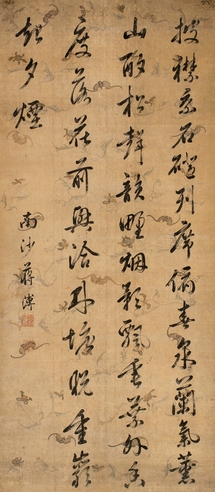 披襟乘石磴列席俯春泉蘭氣薰
山酌松聲韻野影飄垂葉外香
度落花前興洽林塘晚重巖
起夕煙
南沙蔣溥